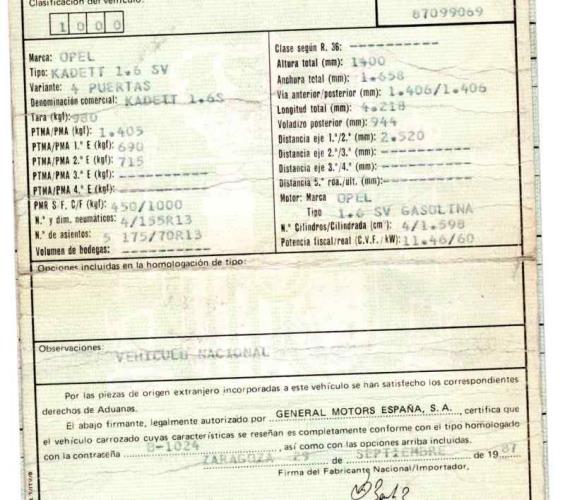 Clasificación del vehículo:
1 0 0 0
87099069
Marca: OPEL
Tipo: KADETT 1.6 SV
Variante: 4 PUERTAS
Denominación comercial: KADETT 1.6S
Tara (kgf): 980
PTMA/PMA (kgf): 1.405
PTMA/PMA 1.º E (kgf): 690
PTMA/PMA 2.º E (kgf): 715
PTMA/PMA 3.º E (kgf): ----------
PTMA/PMA 4.º E (kgf): ----------
PMR S/F. C/F (kgf): 450/1000
N.º y dim. neumáticos: 4/155R13
N.º de asientos: 5 175/70R13
Volumen de bodegas: ----------
Clase según R. 36: ----------
Altura total (mm): 1400
Anchura total (mm): 1.658
Vía anterior/posterior (mm): 1.406/1.406
Longitud total (mm): 4.218
Voladizo posterior (mm): 944
Distancia eje 1.º/2.º (mm): 2.520
Distancia eje 2.º/3.º (mm): ----------
Distancia eje 3.º/4.º (mm): ----------
Distancia 5.ª rda./ult. (mm): ----------
Motor: Marca OPEL
Tipo 1.6 SV GASOLINA
N.º Cilindros/Cilindrada (cm³): 4/1.598
Potencia fiscal/real (C.V.F./kW): 11.46/60
Opciones incluidas en la homologación de tipo:
Observaciones:
VEHICULO NACIONAL
Por las piezas de origen extranjero incorporadas a este vehículo se han satisfecho los correspondientes
derechos de Aduanas.
El abajo firmante, legalmente autorizado por GENERAL MOTORS ESPAÑA, S. A., certifica que
el vehículo carrozado cuyas características se reseñan es completamente conforme con el tipo homologado
con la contraseña B-1024, así como con las opciones arriba incluidas.
ZARAGOZA 29 de SEPTIEMBRE de 1987
Firma del Fabricante Nacional/Importador,